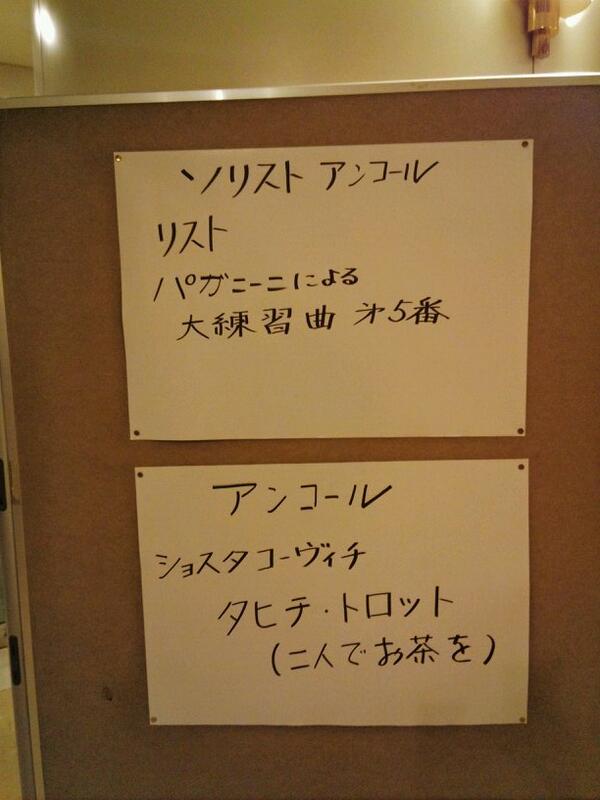 ソリスト アンコール
リスト
パガニーニによる
大練習曲 第5番
アンコール
ショスタコーヴィチ
タヒチ・トロット
(二人でお茶を)